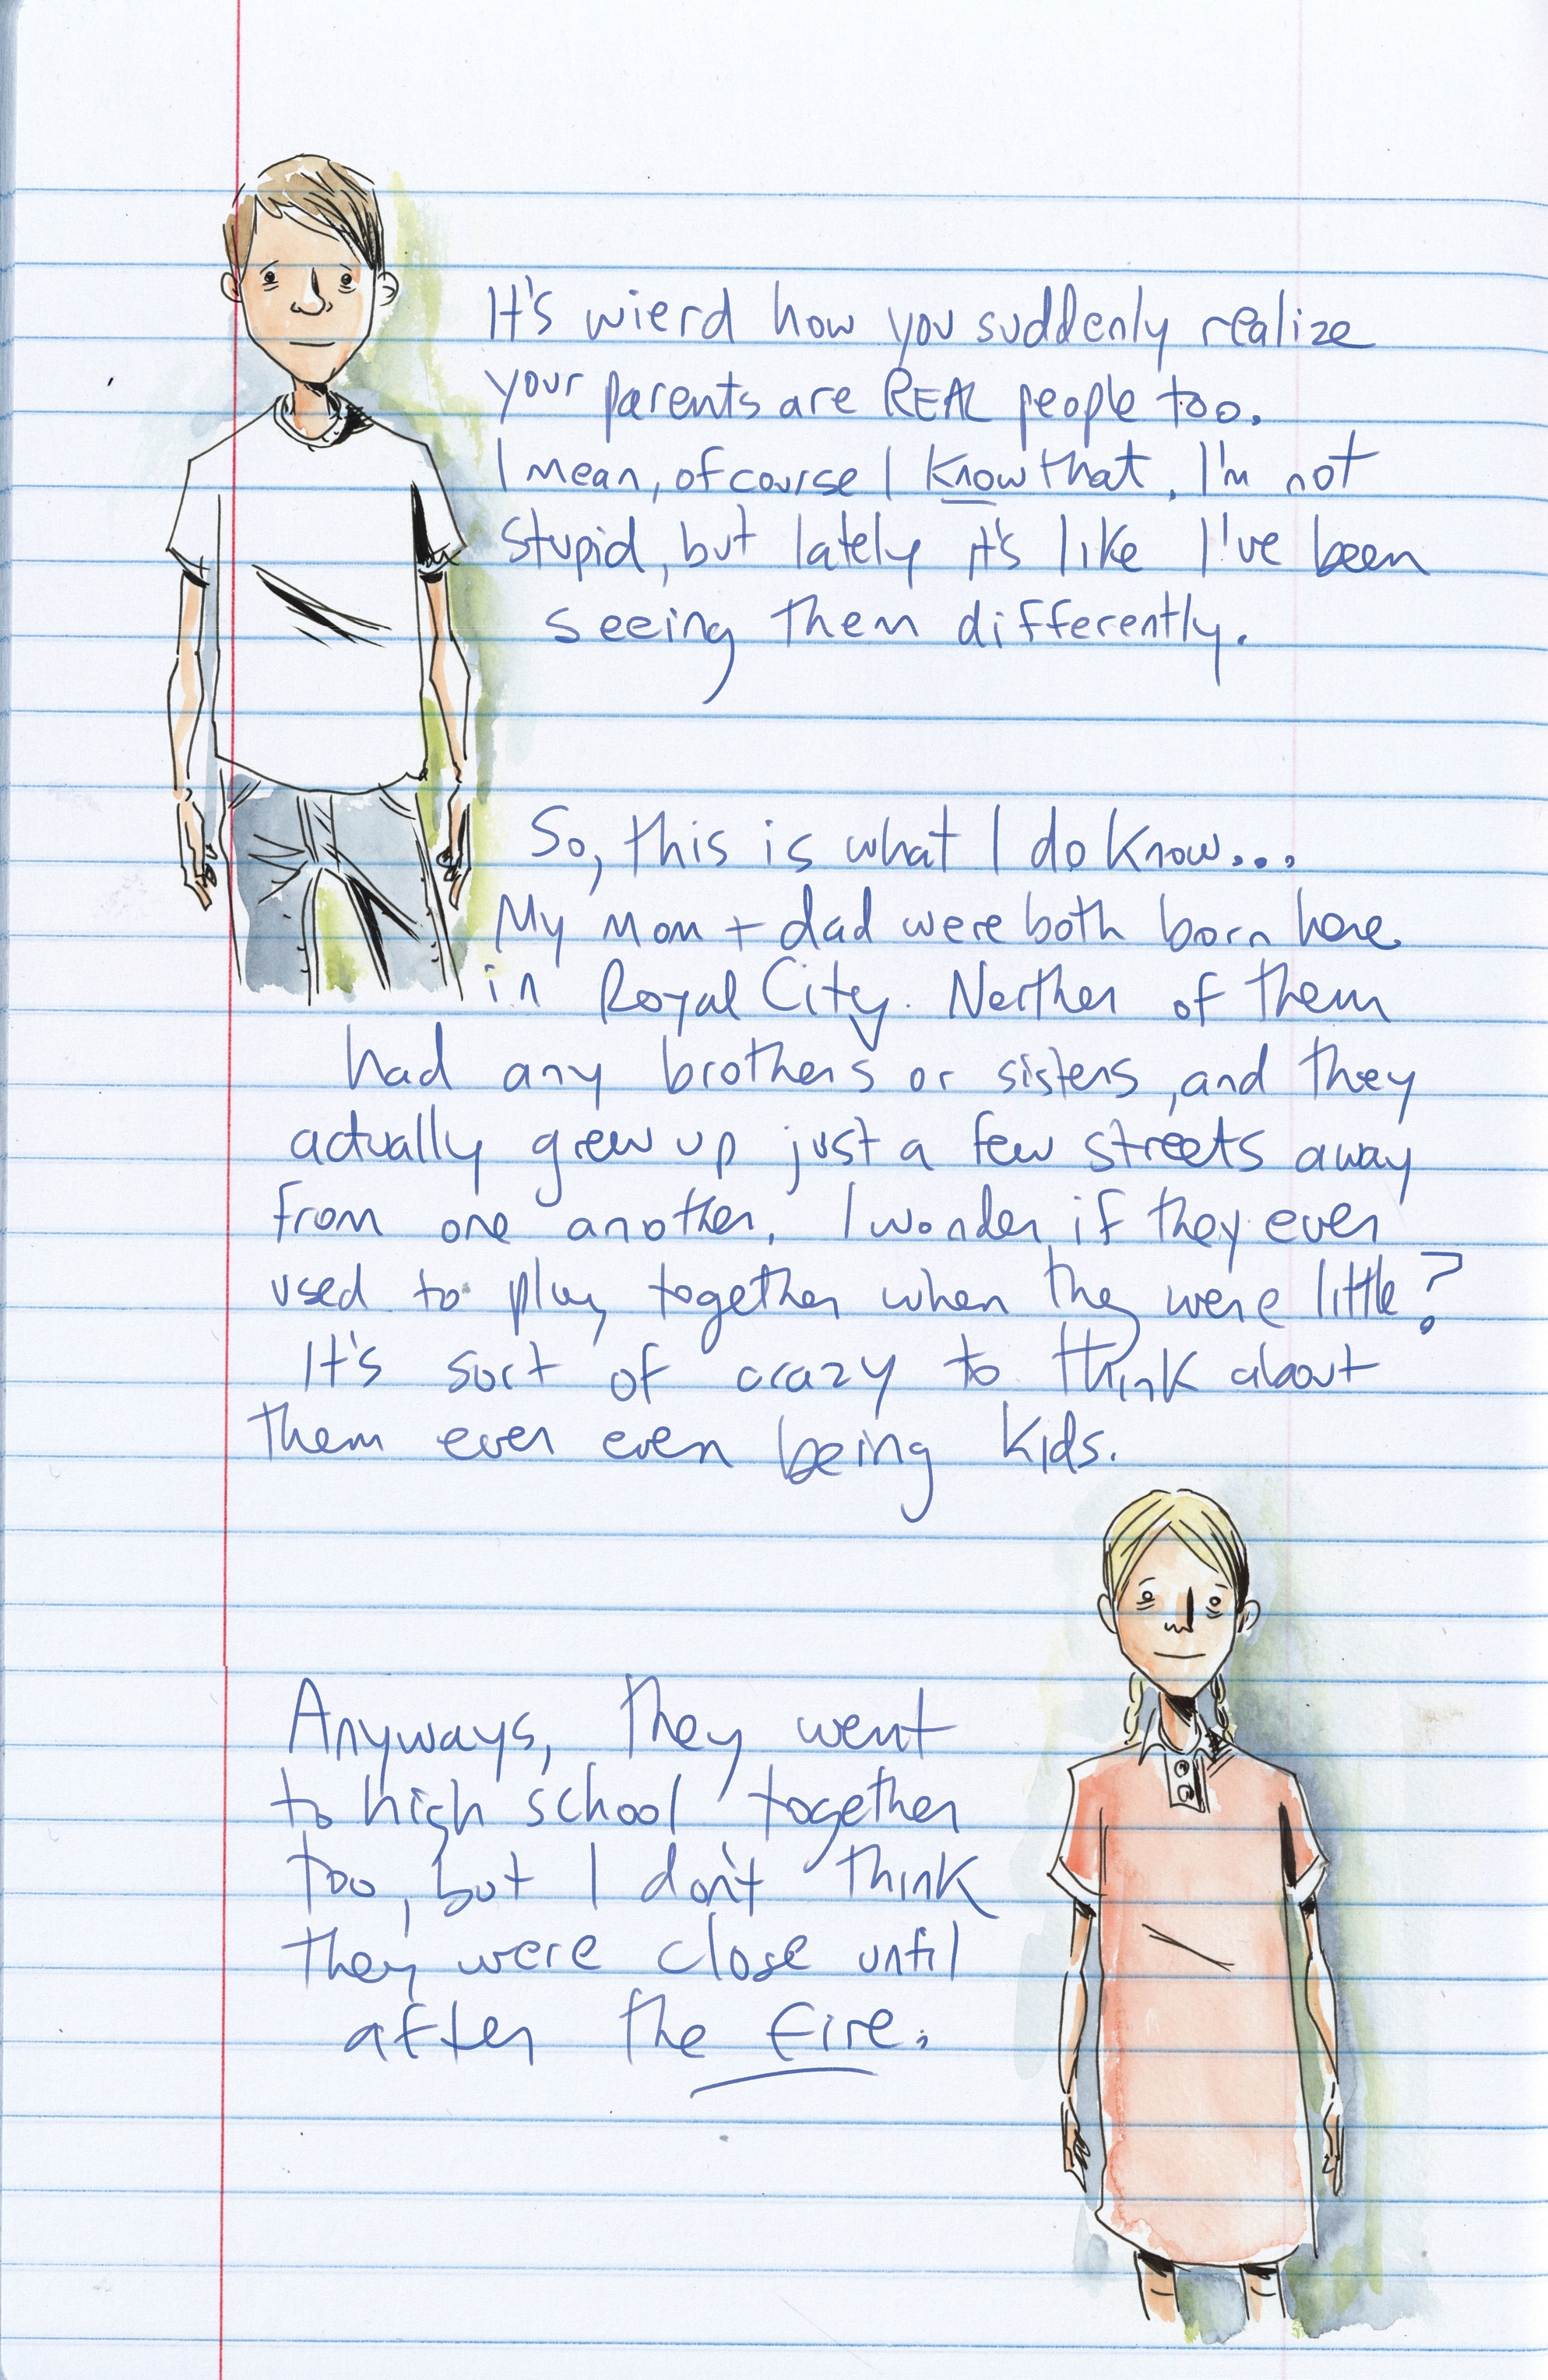 It's wierd how you suddenly realize
your parents are REAL people too.
I mean, of course I know that, I'm not
stupid, but lately it's like I've been
seeing them differently.
So, this is what I do know...
My mom + dad were both born here
in Royal City. Neither of them
had any brothers or sisters, and they
actually grew up just a few streets away
from one another. I wonder if they ever
used to play together when they were little?
It's sort of crazy to think about
them ever even being kids.
Anyways, they went
to high school together
too, but I don't think
they were close until
after the fire.